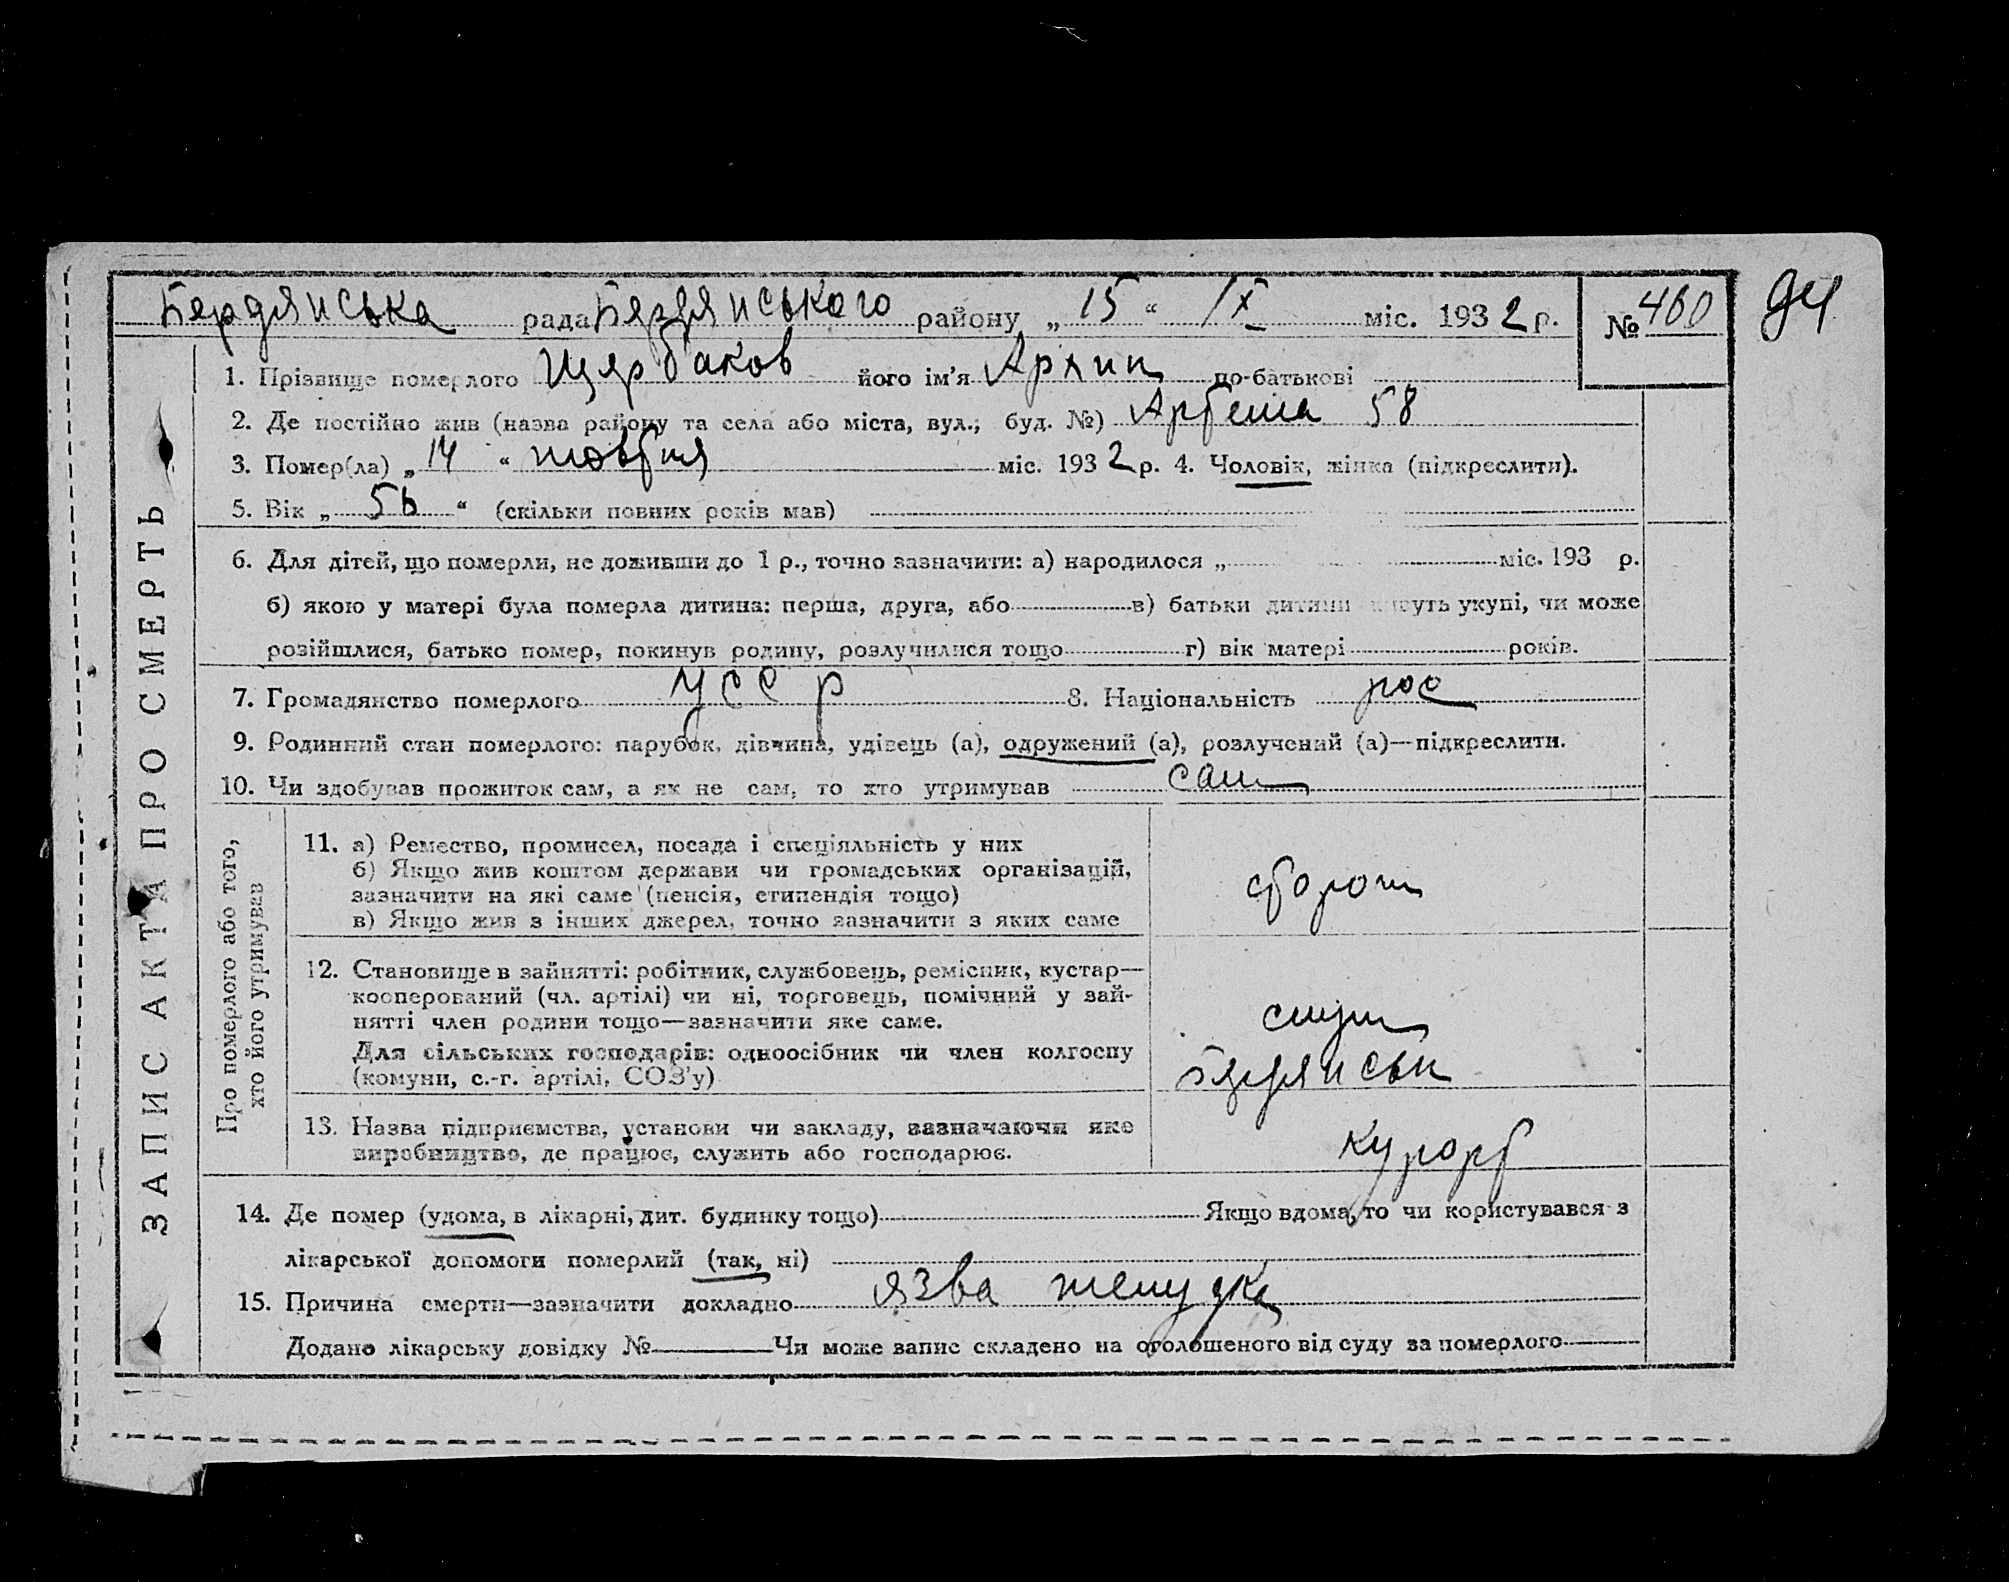 Бердянська рада Бердянського району „ 15 “ IX міс. 1932 р. № 460 94
1. Прізвище померлого Щербаков його ім'я Архип по-батькові
2. Де постійно жив (назва району та села або міста, вул.; буд. №) 58
3. Помер(ла) „ 14 “ жовтня міс. 1932 р. 4. Чоловік, жінка (підкреслити).
5. Вік „ 56 “ (скільки повних років мав)
6. Для дітей, що померли, не доживши до 1 р., точно зазначити: а) народилося „ міс. 193 р.
б) якою у матері була померла дитина: перша, друга, або в) батьки дитини живуть укупі, чи може
розійшлися, батько помер, покинув родину, розлучилися тощо г) вік матері років.
7. Громадянство померлого УССР 8. Національність рос
9. Родинний стан померлого: парубок, дівчина, удівець (а), одружений (а), розлучений (а)—підкреслити.
10. Чи здобував прожиток сам, а як не сам, то хто утримував сам
ЗАПИС АКТА ПРО СМЕРТЬ
Про померлого або того,
хто його утримував
11. а) Ремество, промисел, посада і спеціяльність у них
б) Якщо жив коштом держави чи громадських організацій,
зазначити на які саме (пенсія, стипендія тощо)
в) Якщо жив з інших джерел, точно зазначити з яких саме
сторож
12. Становище в зайнятті: робітник, службовець, ремісник, кустар—
кооперований (чл. артілі) чи ні, торговець, помічний у зай-
нятті член родини тощо—зазначити яке саме.
Для сільських господарів: одноосібник чи член колгоспу
(комуни, с.-г. артілі, СОЗ'у)
служ
Бердянськ
13. Назва підприємства, установи чи закладу, зазначаючи яке
виробництво, де працює, служить або господарює.
курорт
14. Де помер (удома, в лікарні, дит. будинку тощо) Якщо вдома, то чи користувався з
лікарської допомоги померлий (так, ні)
15. Причина смерти—зазначити докладно язва желудка
Додано лікарську довідку № Чи може запис складено на оголошеного від суду за померлого